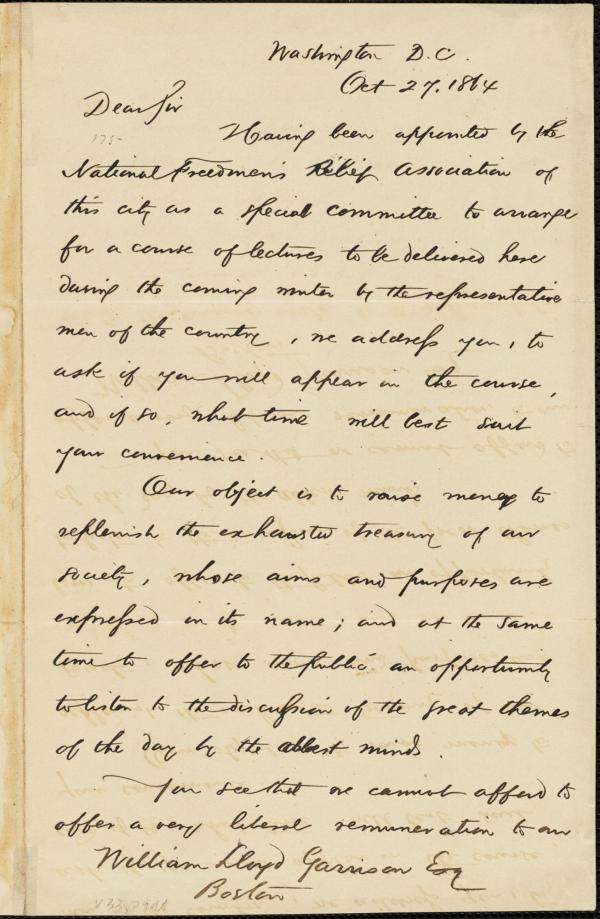 Washington D.C.
Oct 27, 1864
Dear Sir
175
Having been appointed by the
National Freedmen's Relief Association of
this city as a special committee to arrange
for a course of lectures to be delivered here
during the coming winter by the representative
men of the country, we address you, to
ask if you will appear in the course,
and if so, what time will best suit
your convenience.
Our object is to raise money to
replenish the exhausted treasury of our
society, whose aims and purposes are
expressed in its name; and at the same
time to offer to the public an opportunity
to listen to the discussion of the great themes
of the day by the ablest minds.
You see that we cannot afford to
offer a very liberal remuneration to our
William Lloyd Garrison Esq
Boston